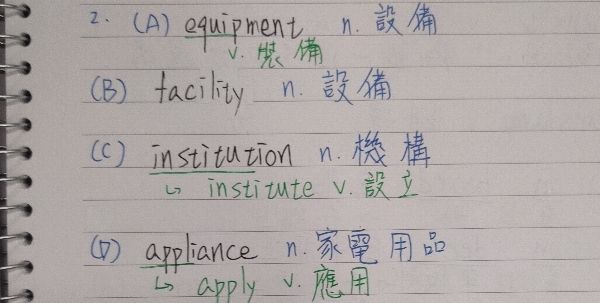 2. (A) equipment n. 設備
v. 裝備
(B) facility n. 設備
(C) institution n. 機構
↳ institute v. 設立
(D) appliance n. 家電用品
↳ apply v. 應用